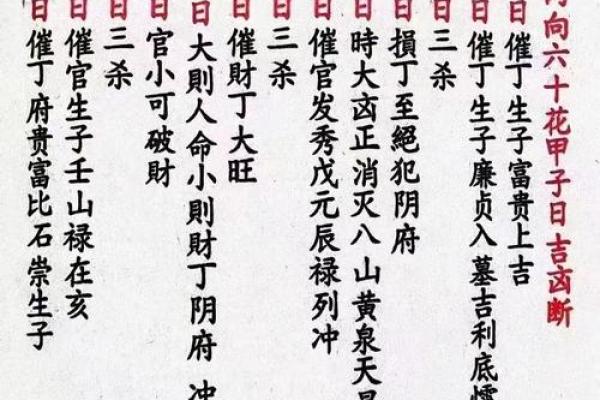 向六十花甲子日吉凶断
日催丁生子富贵上吉
日催丁生子廉贞入墓吉利底懦
日三杀
日損丁至絕犯阴府
日時大凶正消灭八山黄泉天
日催官发秀戊元辰禄列冲
日三杀
日催財丁大旺
日大則人命小則財丁阴府 冲
日官小可破財
日三杀
日催官生子壬山禄在亥
日催丁府贵富比石崇生子